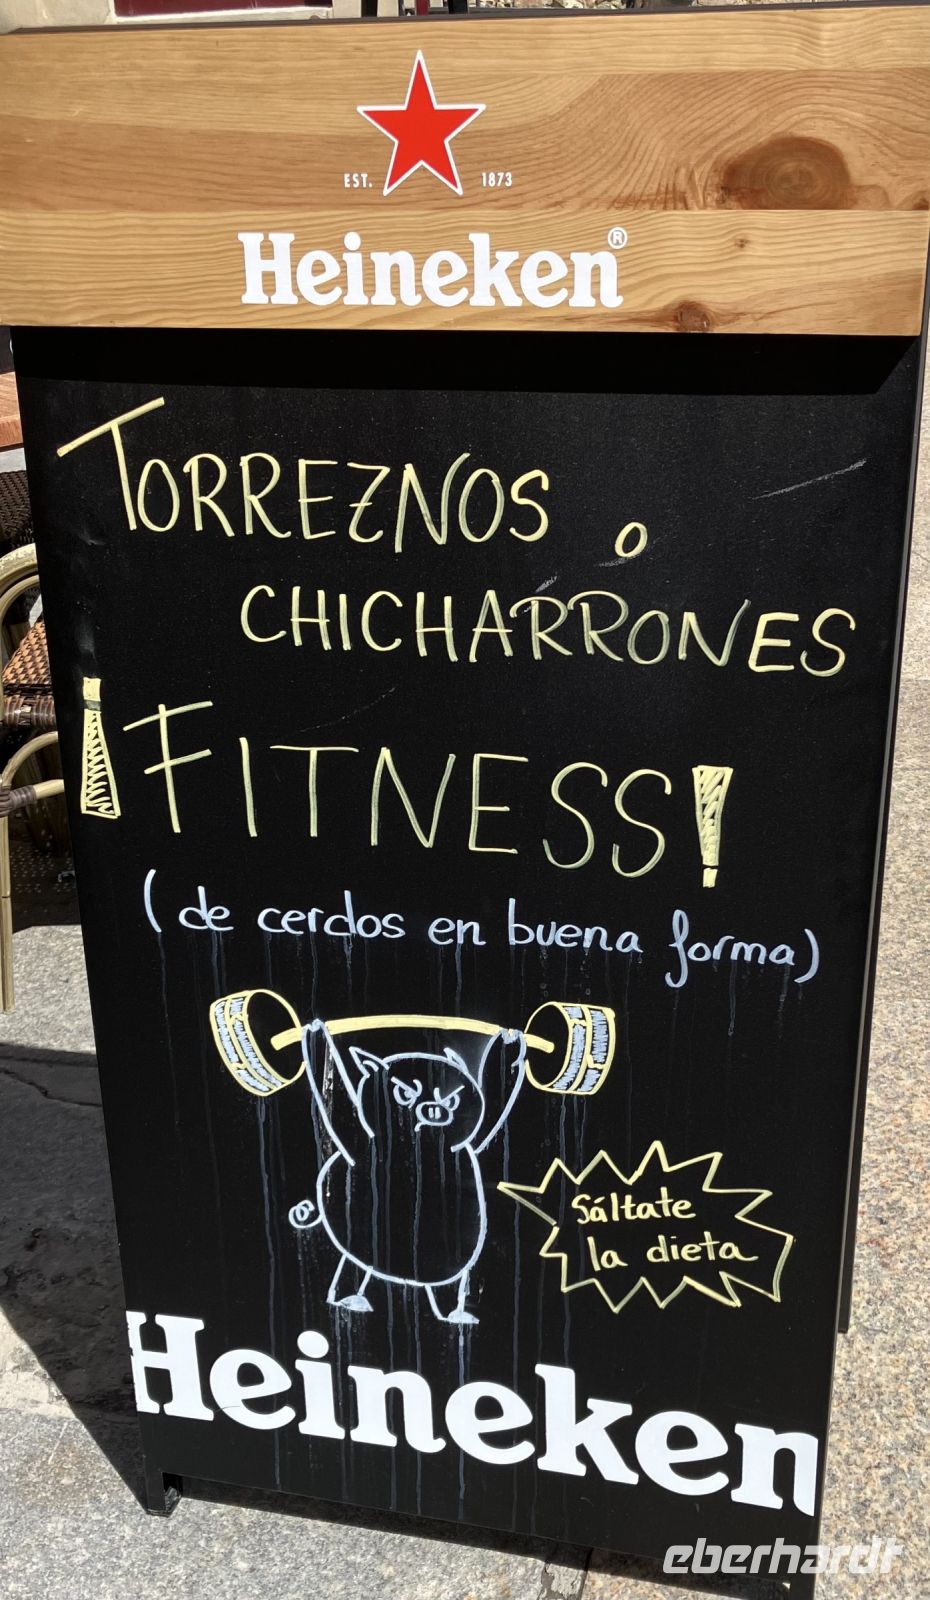 EST. 1873
Heineken®
TORREZNOS o
CHICHARRONES
¡FITNESS!
(de cerdos en buena forma)
Sáltate
la dieta
Heineken
eberhardt